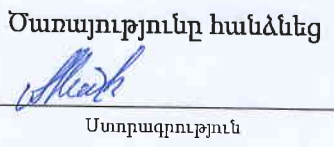 Ծառայությունը հանձնեց
Ստորագրություն